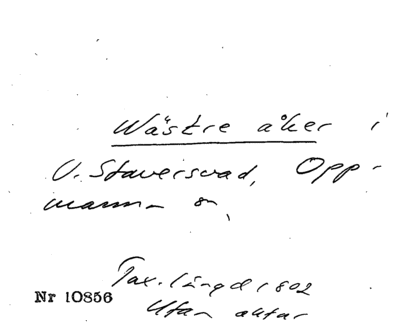 Wästre åker i
V. Staversvad, Opp-
manna sn,
Tax. längd 1802
Nr 10856
Utan aktar